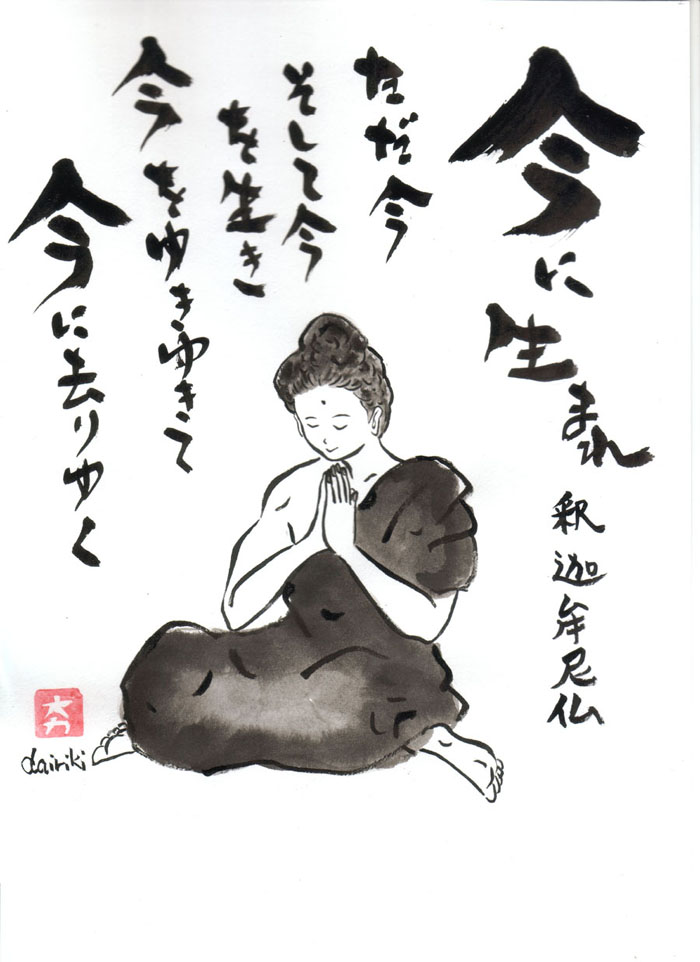 今に生まれ
釈迦牟尼仏
ただ今
そして今
を生き
今をゆきゆきて
今に去りゆく
大力
dairiki